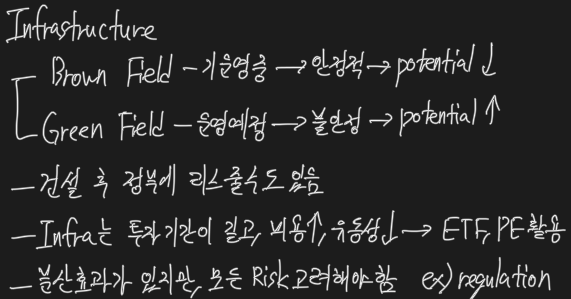 Infrastructure
Brown Field - 기운영중 → 안정적 → potential ↓
Green Field - 운영예정 → 불안정 → potential ↑
- 건설 후 정부에 리스줄수도 있음
- Infra는 투자기간이 길고, 비용↑, 유동성↓ → ETF, PE 활용
- 분산효과가 있지만, 모든 Risk 고려해야함 ex) regulation